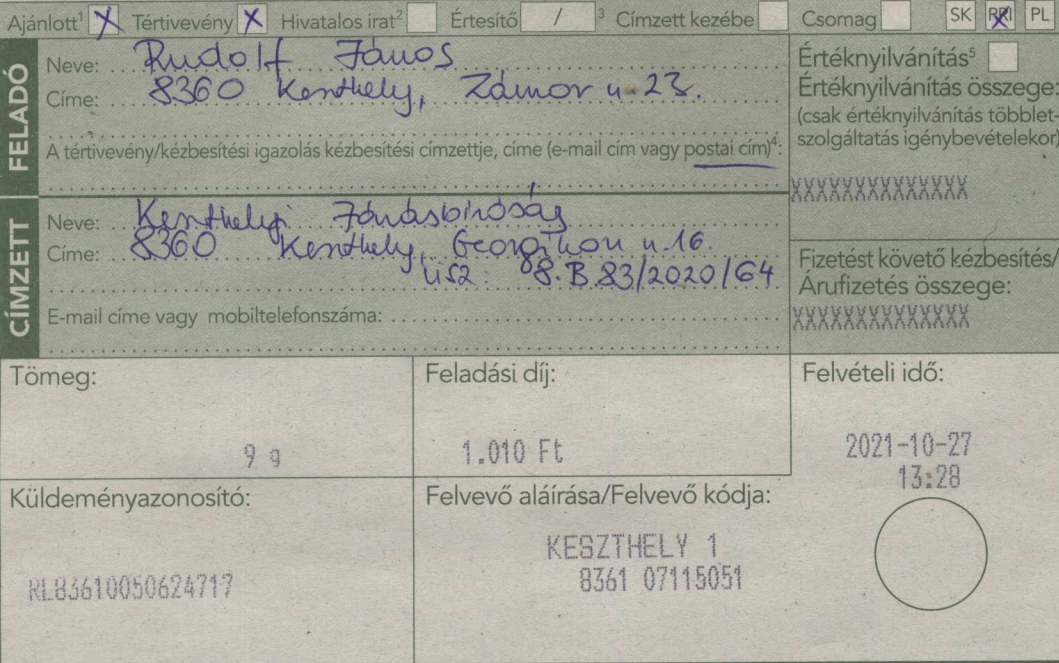 Ajánlott¹ X Tértivevény X Hivatalos irat² Értesítő / ³ Címzett kezébe Csomag SK RPI PL
FELADÓ
Neve: Rudolf János
Címe: 8360 Keszthely, Zámor u. 23.
A tértivevény/kézbesítési igazolás kézbesítési címzettje, címe (e-mail cím vagy postai cím)⁴:
Értéknyilvánítás⁵
Értéknyilvánítás összege:
(csak értéknyilvánítás többlet-
szolgáltatás igénybevételekor)
XXXXXXXXXXXXXX
CÍMZETT
Neve: Keszthelyi Járásbíróság
Címe: 8360 Keszthely, Georgikon u. 16.
ÜSZ: 8.B.83/2020/64
E-mail címe vagy mobiltelefonszáma:
Fizetést követő kézbesítés/
Árufizetés összege:
XXXXXXXXXXXXXX
Tömeg:
9 g
Feladási díj:
1.010 Ft
Felvételi idő:
2021-10-27
13:28
Küldeményazonosító:
RL83610050624717
Felvevő aláírása/Felvevő kódja:
KESZTHELY 1
8361 07115051